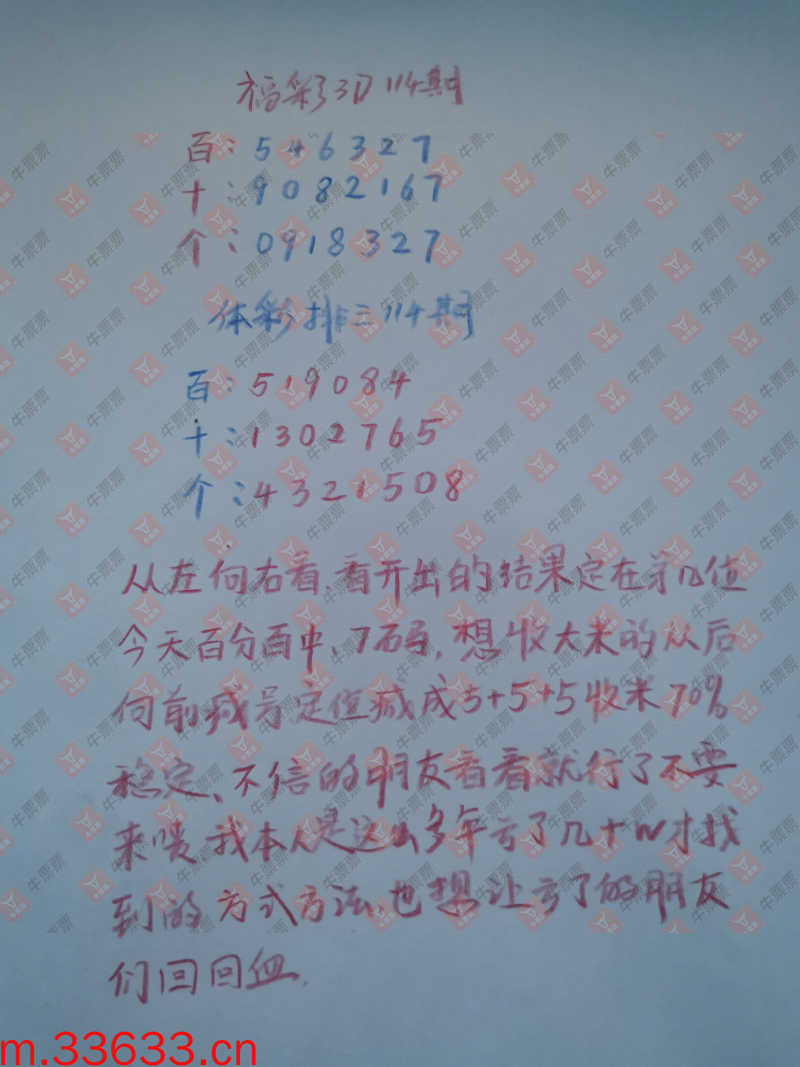 福彩3D114期
百:546327
十:9082167
个:0918327
体彩排三114期
百:519084
十:1302765
个:4321508
从左向右看、看开出的结果定在第几位
今天百分百中、7码,想收大米的从后
向前减号定位减成5+5+5收米70%
稳定、不信的朋友看看就行了不要
来喷我本人是这么多年亏了几十W才找
到的方式方法也想让亏了的朋友
们回回血.
牛票票
m.33633.cn